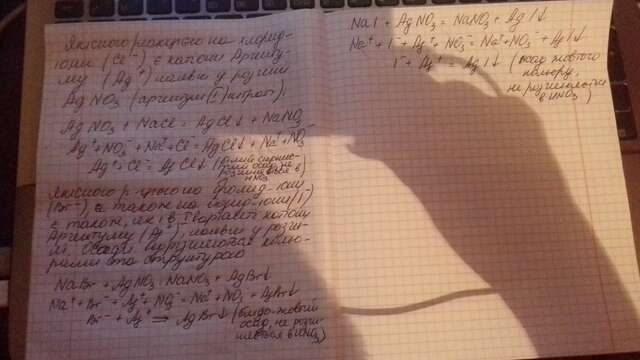 Якісною реакцією на хлорид-
іони (Cl⁻) є катіони Аргенту-
му (Ag⁺) наявні у розчині
AgNO₃ (аргентум (I) нітрат),
AgNO₃ + NaCl = AgCl↓ + NaNO₃
Ag⁺ + NO₃⁻ + Na⁺ + Cl⁻ = AgCl↓ + Na⁺ + NO₃⁻
Ag⁺ + Cl⁻ = AgCl↓ (білий
осад, не
в HNO₃)
Якісною на бромід-іони
(Br⁻) є також на іони (I⁻)
є також, як і в катіону
Аргентуму (Ag⁺), наявні у розчи-
ні. Осади кольо-
рами та структурою
NaBr + AgNO₃ = NaNO₃ + AgBr↓
Na⁺ + Br⁻ + Ag⁺ + NO₃⁻ = Na⁺ + NO₃⁻ + AgBr↓
Br⁻ + Ag⁺ = AgBr↓ (блідо-жовтий
осад, не розчи-
няється в HNO₃)
NaI + AgNO₃ = NaNO₃ + AgI↓
Na⁺ + I⁻ + Ag⁺ + NO₃⁻ = Na⁺ + NO₃⁻ + AgI↓
I⁻ + Ag⁺ = AgI↓ (осад жовтого
кольору,
не розчиняється
в HNO₃)